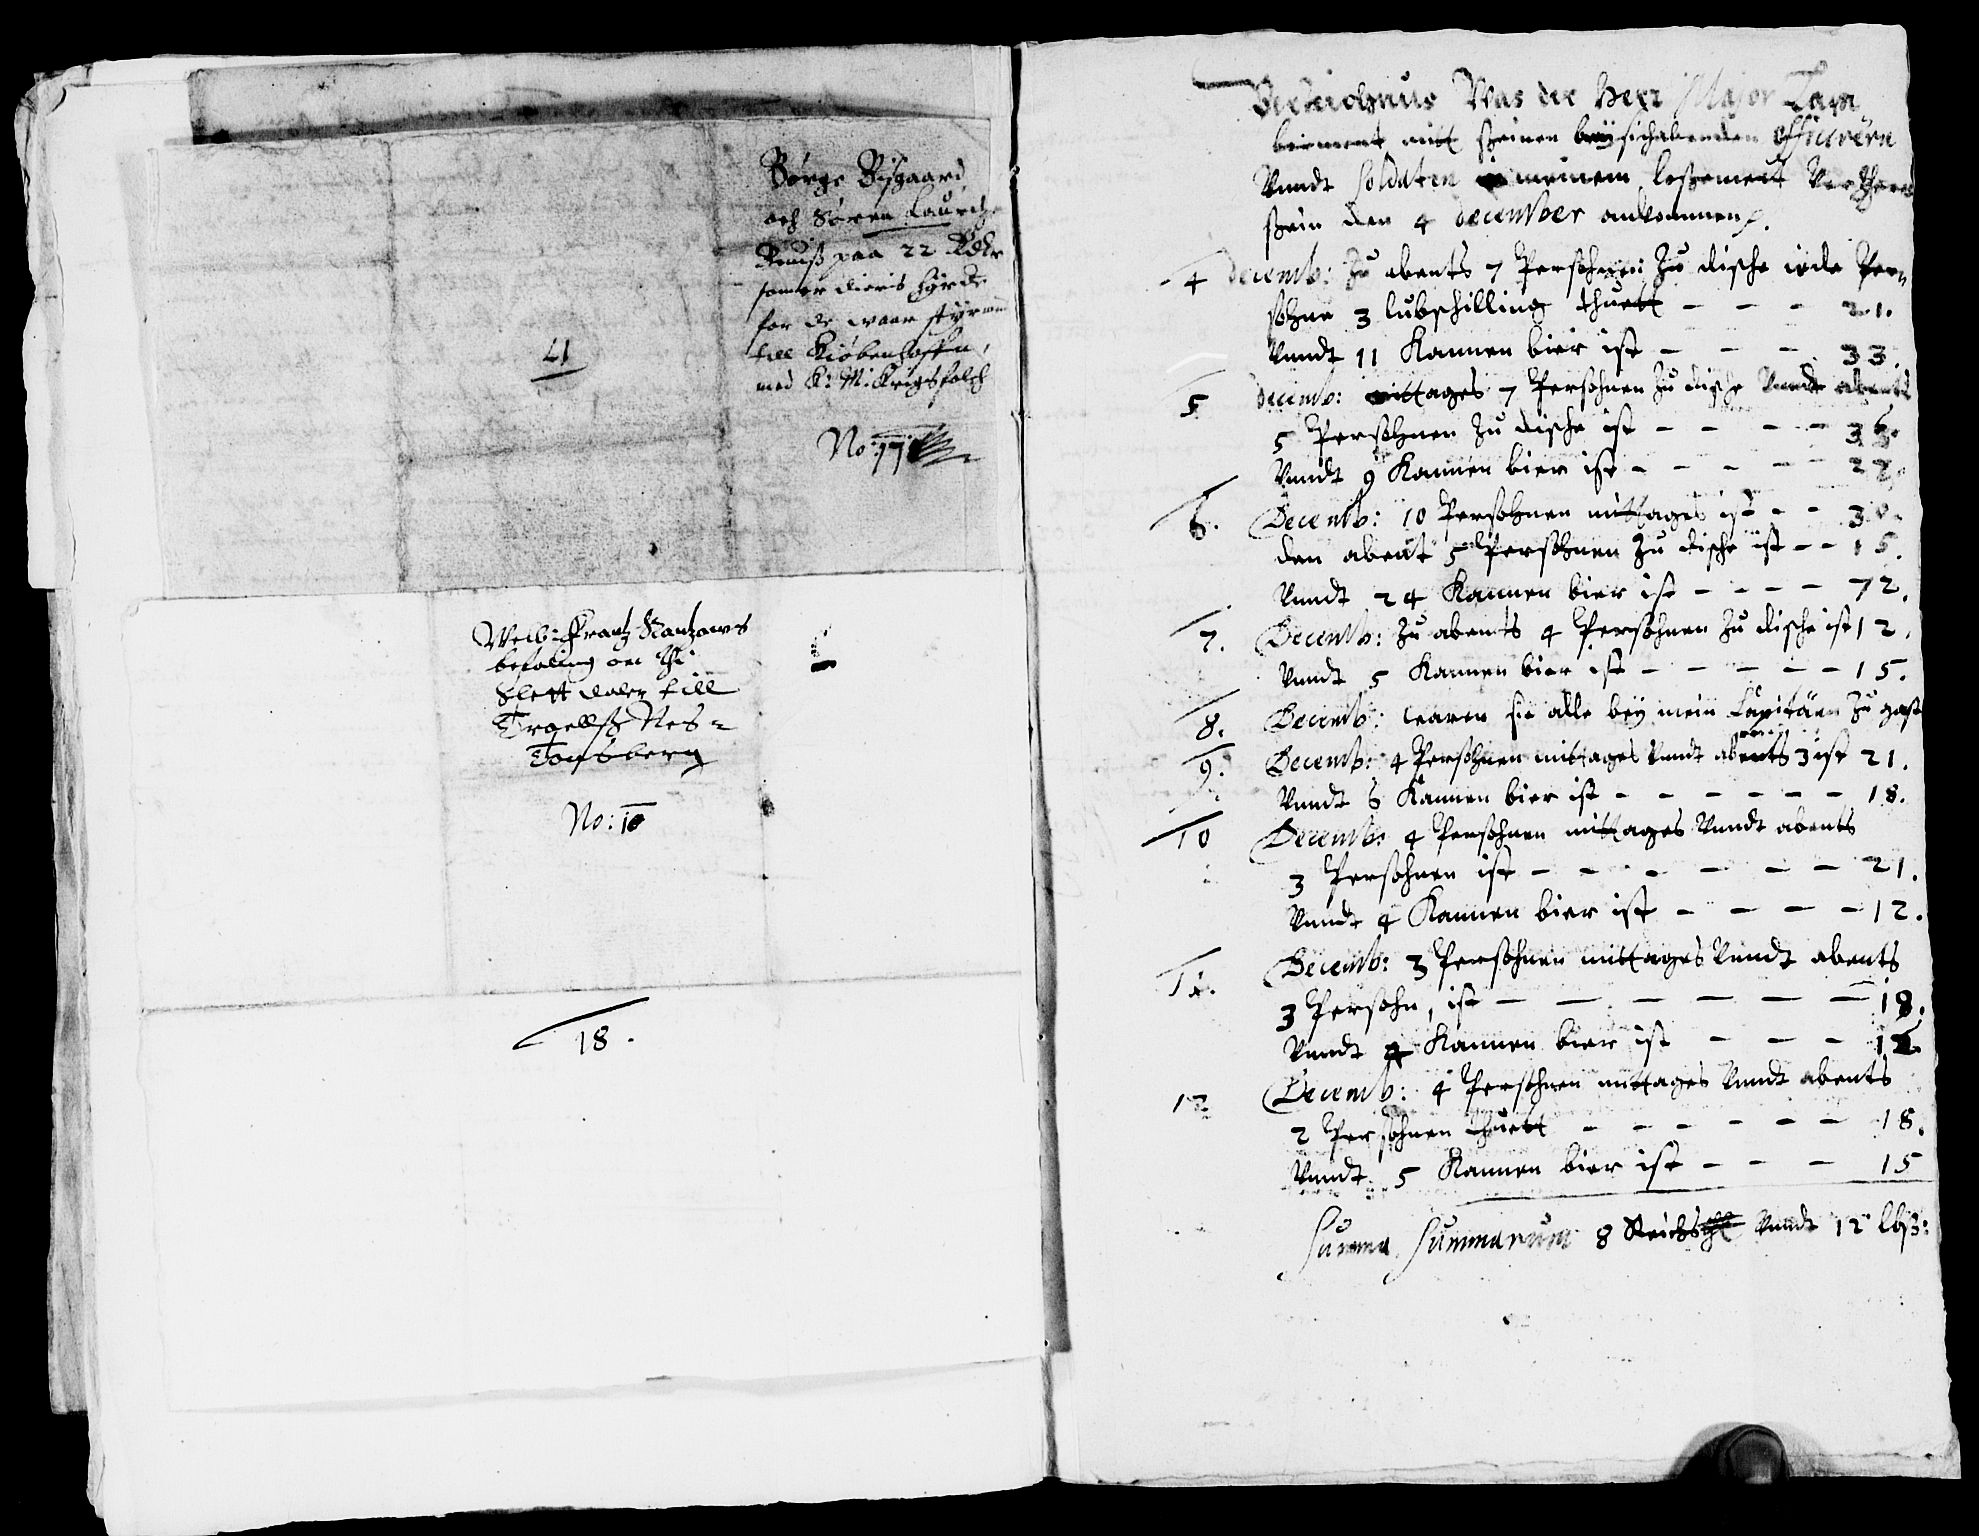 Børge Bisgaard
och Søren Lauridtz
Beuiß paa 22 Rdlr
som er dieris hyrde
for de waar styrmen
till Kiøbenhaffn,
med K: M: Krigsfolch
No: 17
17
Welb: Frantz Rantzows
befaling om thi
Slett daler till
Troelss Nes-
Tonsberg
No: 18
18.
Verzeichnus Was der Herr Major
mitt seinen bey sich habenden Officirern
Vundt Soldaten in meinem losement
sein den 4 december ankommen.
4 decemb: Zu abents 7 Persohnen Zu dische iede Per-
sohne 3 lubschilling thuett - - - 21.
Vundt 11 Kannen bier ist - - - 33.
5 decemb: mittages 7 Persohnen Zu dische Vundt abents
5 Persohnen Zu dische ist - - - - 36.
Vundt 9 Kannen bier ist - - - - - 27.
6. Decemb: 10 Persohnen mittages ist - - 30.
den abent 5 Persohnen Zu dische ist - - 15.
Vundt 24 Kannen bier ist - - - - 72.
7. Decemb: Zu abents 4 Persohnen Zu dische ist 12.
Vundt 5 Kannen bier ist - - - - - 15.
8. Decemb: waren sie alle bey mein Capitän Zu gast
9. Decemb: 4 Persohnen mittages Vundt abents 3 ist 21.
Vundt 6 Kannen bier ist - - - - - - 18.
10 Decemb: 4 Persohnen mittages Vundt abents
3 Persohnen ist - - - - - - 21.
Vundt 4 Kannen bier ist - - - - 12.
11. Decemb: 3 Persohnen mittages Vundt abents
3 Persohn, ist - - - - - - 18.
Vundt 4 Kannen bier ist - - - 12.
12 Decemb: 4 Persohnen mittages Vundt abents
2 Persohnen thuett - - - - - - 18.
Vundt 5 Kannen bier ist - - - 15
Summa Summarum 8 Reichsthl Vundt 12 lbß: